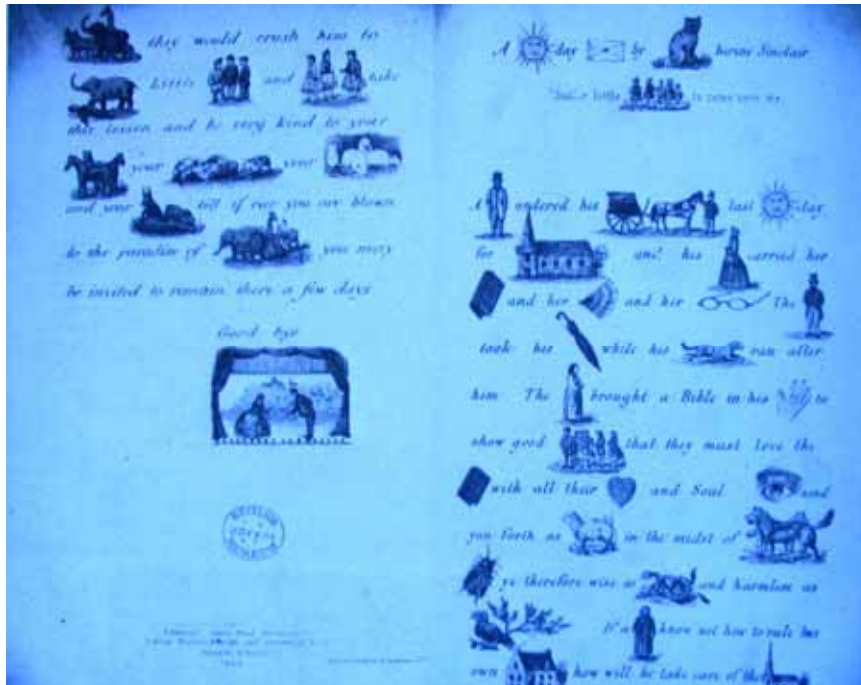 they would crush him to
Little and take
this lesson and be very kind to your
your your
and your till if ever you are blown
to the paradise of you may
be invited to remain there a few days
Good bye
A day by herine Sinclair
A ordered his last day
for and his carried her
and her and her The
took his while his ran after
him The brought a Bible in his to
show good that they must love the
with all their and Soul send
you forth as in the midst of
ye therefore wise as and harmless as
If a know not how to rule his
own how will he take care of the